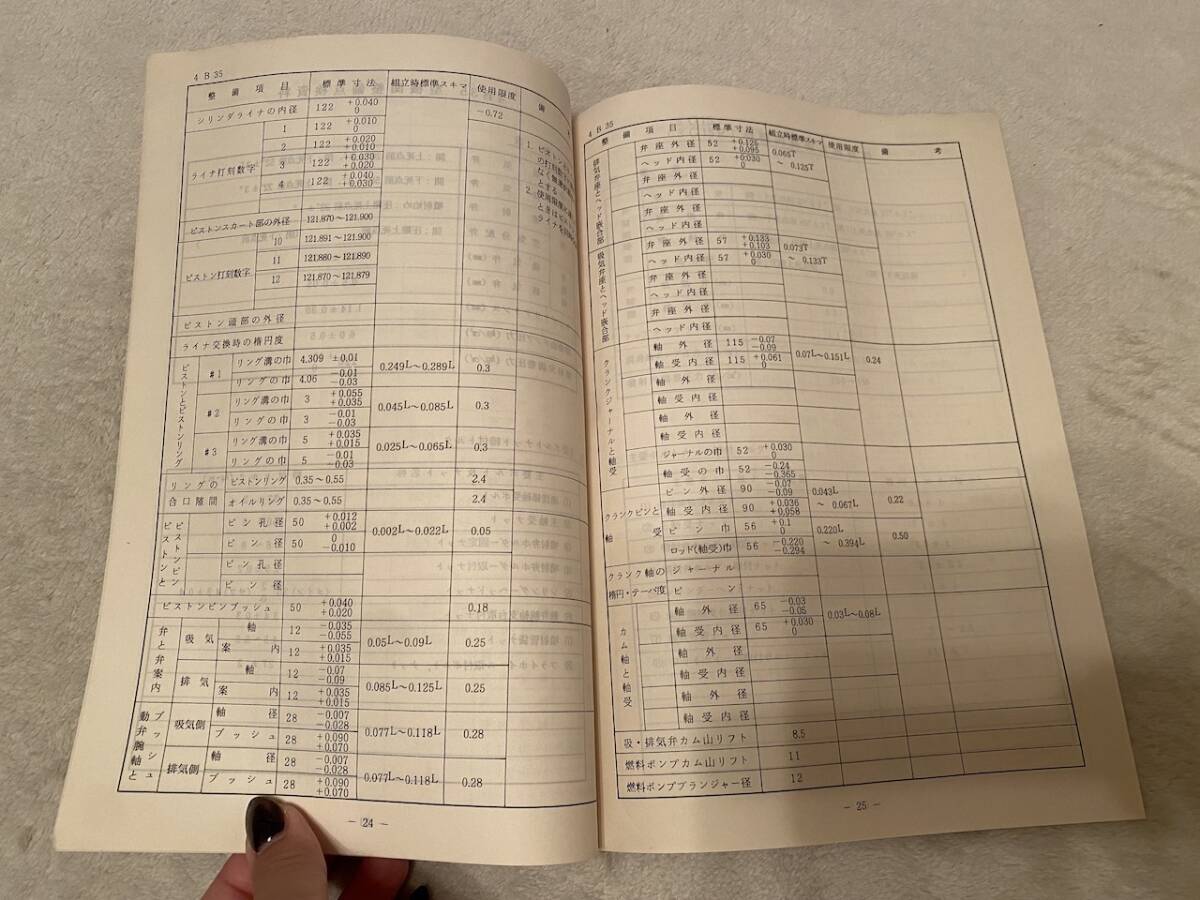 4 B 35
整備項目 標準寸法 組立時標準スキマ 使用限度 備
シリンダライナの内径 122 +0.040 0 −0.72
ライナ打刻数字
1 122 +0.010 0
2 122 +0.020 +0.010
3 122 +0.030 +0.020
4 122 +0.040 +0.030
ピストンスカート部の外径 121.870〜121.900
ピストン打刻数字
10 121.891〜121.900
11 121.880〜121.890
12 121.870〜121.879
ピストン頭部の外径
ライナ交換時の楕円度
ピストンとピストンリング
#1 リング溝の巾 4.309 ±0.01 0.249L〜0.289L 0.3
リングの巾 4.06 −0.01 −0.03
#2 リング溝の巾 3 +0.055 +0.035 0.045L〜0.085L 0.3
リングの巾 3 −0.01 −0.03
#3 リング溝の巾 5 +0.035 +0.015 0.025L〜0.065L 0.3
リングの巾 5 −0.01 −0.03
リングの合口隙間
ピストンリング 0.35〜0.55 2.4
オイルリング 0.35〜0.55 2.4
ピストンとピストンピン
ピン孔径 50 +0.012 +0.002 0.002L〜0.022L 0.05
ピン径 50 0 −0.010
ピン孔径
ピン径
ピストンピンブッシュ 50 +0.040 +0.020 0.18
弁と弁案内
吸気 軸 12 −0.035 −0.055 0.05L〜0.09L 0.25
案内 12 +0.035 +0.015
排気 軸 12 −0.07 −0.09 0.085L〜0.125L 0.25
案内 12 +0.035 +0.015
動弁腕軸とブッシュ
吸気側 軸径 28 −0.007 −0.028 0.077L〜0.118L 0.28
ブッシュ 28 +0.090 +0.070
排気側 軸径 28 −0.007 −0.028 0.077L〜0.118L 0.28
ブッシュ 28 +0.090 +0.070
− 24 −
4 B 35
整備項目 標準寸法 組立時標準スキマ 使用限度 備考
排気弁座とヘッド嵌合部
弁座外径 52 +0.125 +0.095 0.065T 〜 0.125T
ヘッド内径 52 +0.030 0
弁座外径
ヘッド内径
弁座外径
ヘッド内径
吸気弁座とヘッド嵌合部
弁座外径 57 +0.133 +0.103 0.073T 〜 0.133T
ヘッド内径 57 +0.030 0
弁座外径
ヘッド内径
弁座外径
ヘッド内径
クランクジャーナルと軸受
軸外径 115 −0.07 −0.09 0.07L〜0.151L 0.24
軸受内径 115 +0.061 0
軸外径
軸受内径
軸外径
軸受内径
ジャーナルの巾 52 +0.030 0
軸受の巾 52 −0.24 −0.365
クランクピンと軸受
ピン外径 90 −0.07 −0.09 0.043L 〜 0.067L 0.22
軸受内径 90 +0.036 +0.058
ピン巾 56 +0.1 0 0.220L 〜 0.394L 0.50
ロッド(軸受)巾 56 −0.220 −0.294
クランク軸の楕円・テーパ度
ジャーナル
ピン
カム軸と軸受
軸外径 65 −0.03 −0.05 0.03L〜0.08L
軸受内径 65 +0.030 0
軸外径
軸受内径
軸外径
軸受内径
吸・排気弁カム山リフト 8.5
燃料ポンプカム山リフト 11
燃料ポンププランジャー径 12
− 25 −